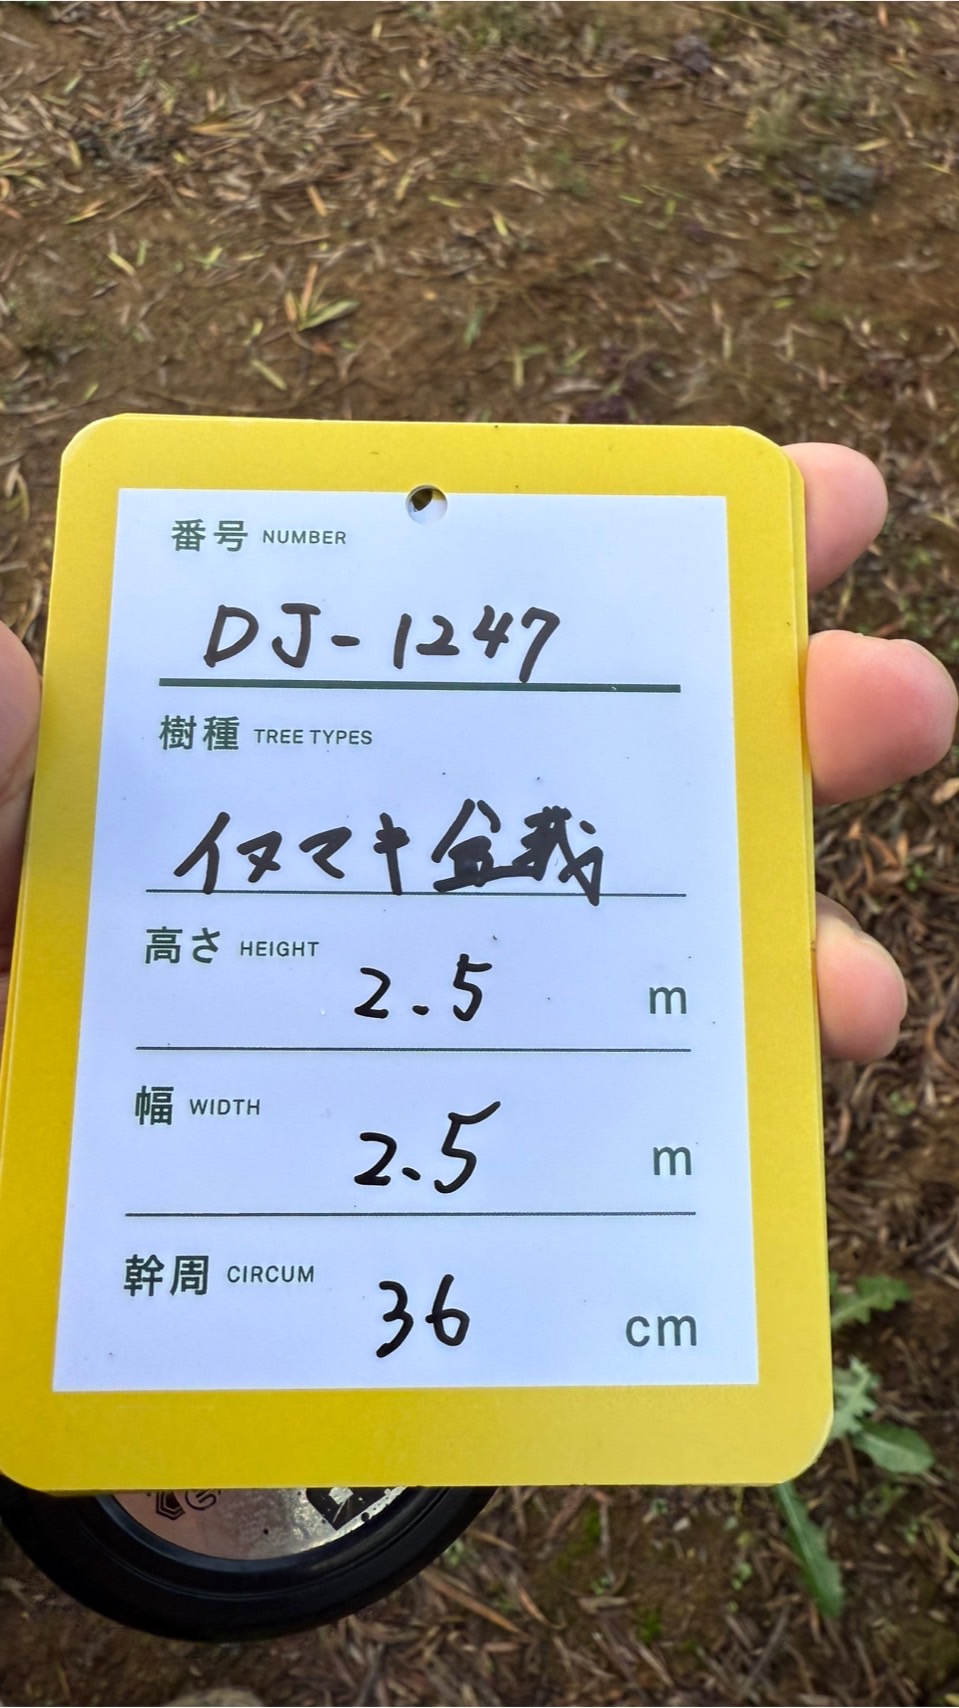 番号 NUMBER
DJ-1247
樹種 TREE TYPES
イヌマキ盆栽
高さ HEIGHT 2.5 m
幅 WIDTH 2.5 m
幹周 CIRCUM 36 cm